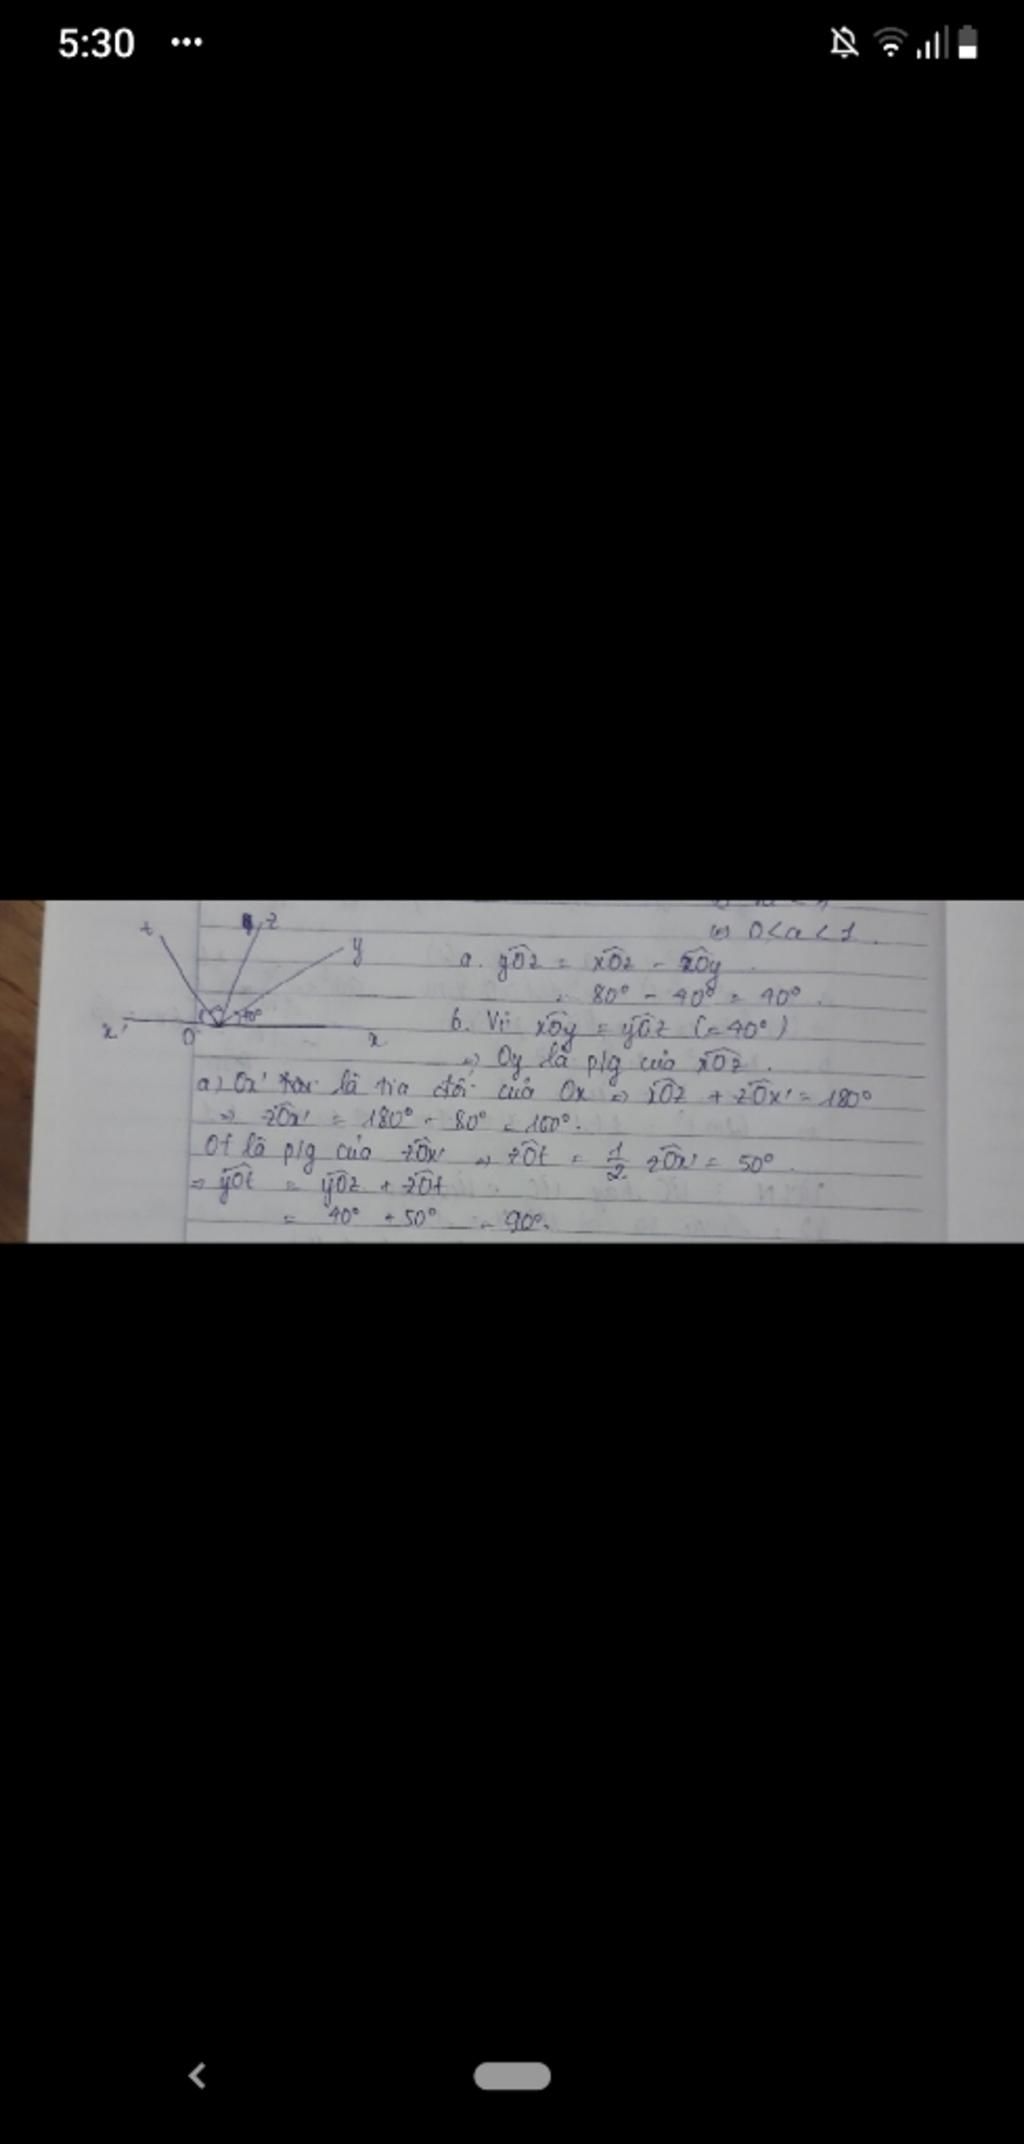 5:30
⇔ 0 < a < 1.
t z y
x' O 40° x
a. yÔz = xÔz - xÔy
= 80° - 40° = 40°.
b. Vì xÔy = yÔz (= 40°)
⇒ Oy là p/g của xÔz.
a) Ox' là tia đối của Ox ⇒ xÔz + zÔx' = 180°
⇒ zÔx' = 180° - 80° = 100°.
Ot là p/g của zÔx' ⇒ zÔt = 1/2 zÔx' = 50°.
⇒ yÔt = yÔz + zÔt
= 40° + 50° = 90°.